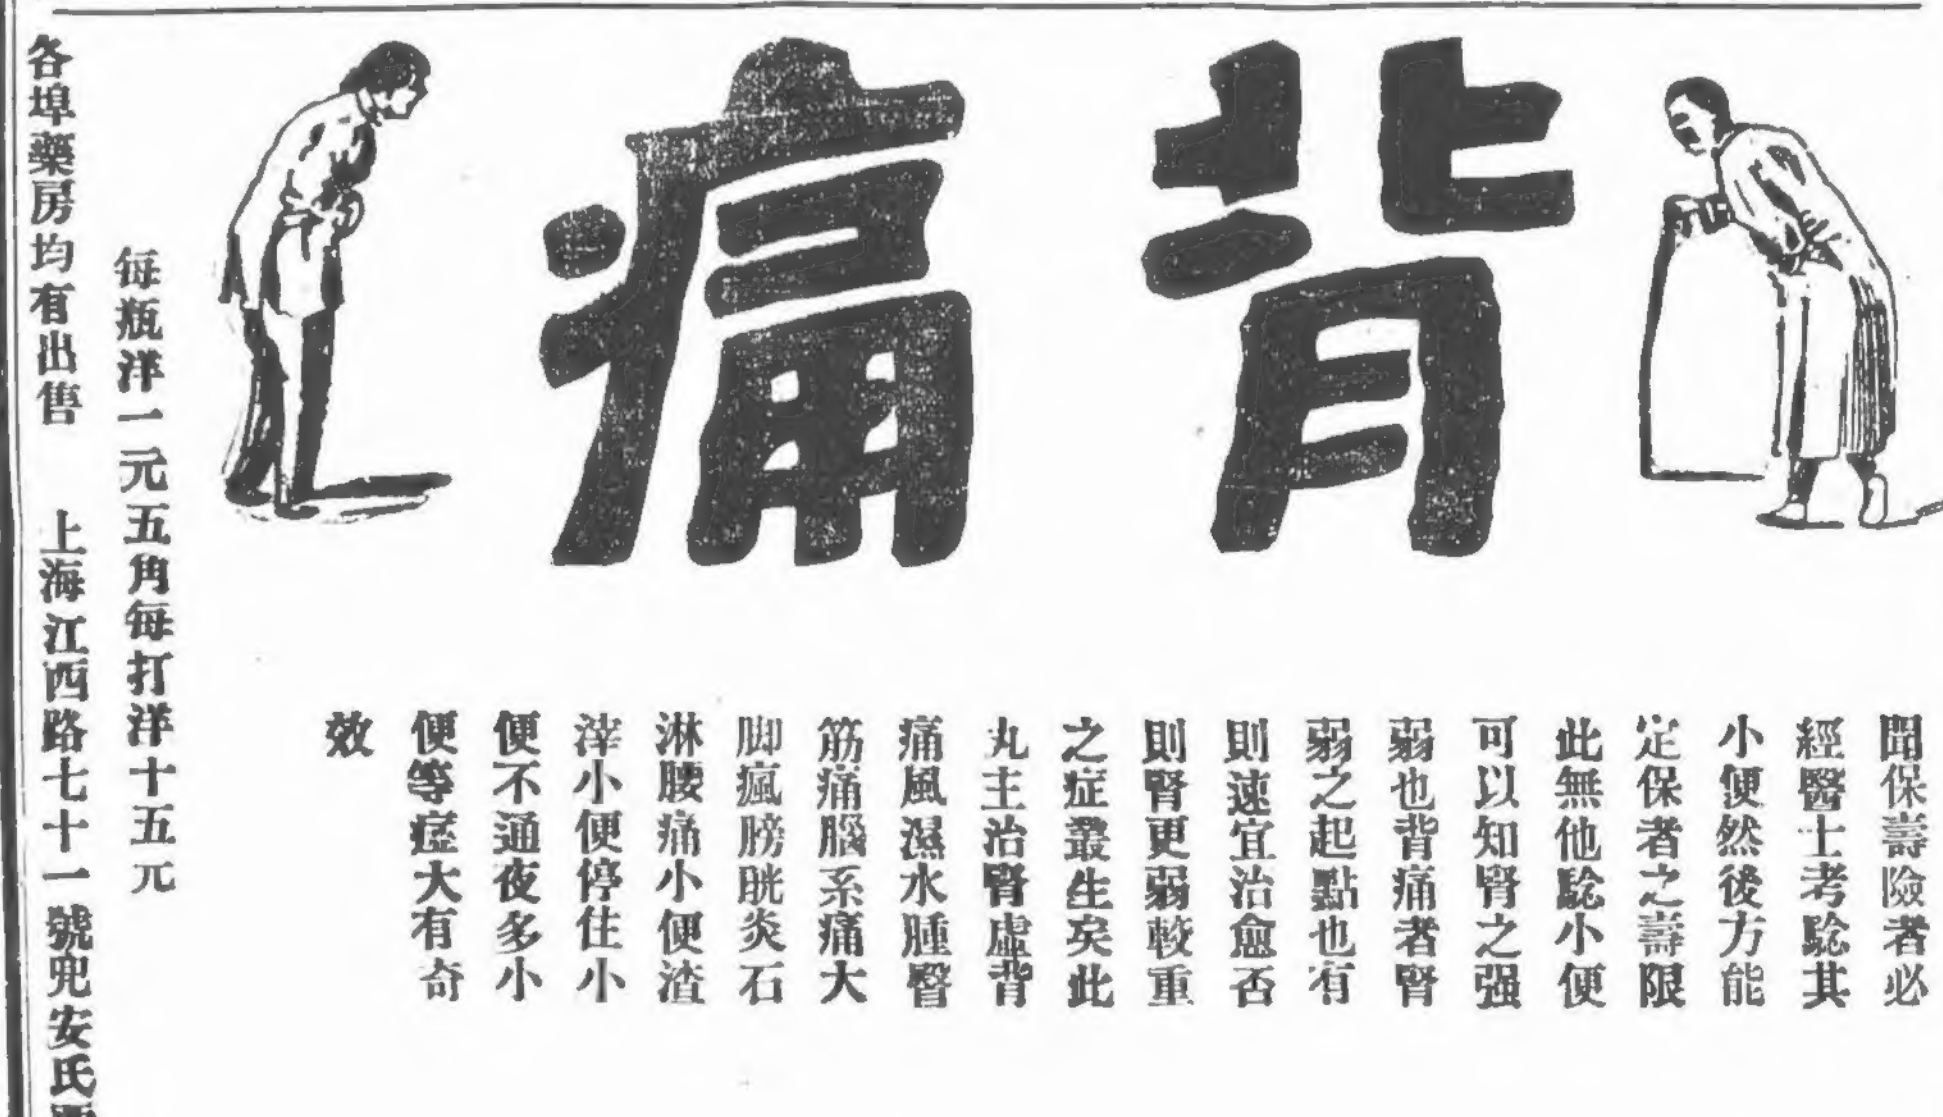 背痛
聞保壽險者必
經醫士考驗其
小便然後方能
定保者之壽限
此無他驗小便
可以知腎之强
弱也背痛者腎
弱之起點也有
則速宜治愈否
則腎更弱較重
之症叢生矣此
丸主治腎虛背
痛風濕水腫臀
筋痛腦系痛大
脚瘋膀胱炎石
淋腰痛小便渣
滓小便停住小
便不通夜多小
便等症大有奇
效
每瓶洋一元五角每打洋十五元
各埠藥房均有出售 上海江西路七十一號兜安氏